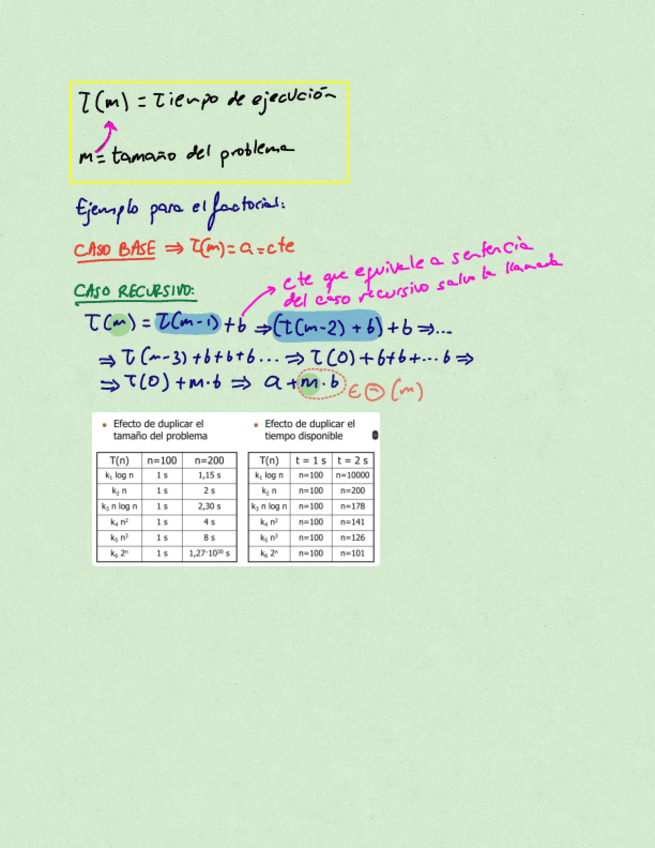 T(m) = Tiempo de ejecución
m = tamaño del problema
Ejemplo para el factorial:
CASO BASE ⇒ T(m) = a = cte
cte que equivale a sentencia
del caso recursivo salvo la llamada
CASO RECURSIVO:
T(m) = T(m-1) + b ⇒ (T(m-2) + b) + b ⇒ ...
⇒ T(m-3) + b + b + b ... ⇒ T(0) + b + b + ... b ⇒
⇒ T(0) + m · b ⇒ a + m · b ∈ Θ (m)
• Efecto de duplicar el
tamaño del problema
T(n) n=100 n=200
k₁ log n 1 s 1,15 s
k₂ n 1 s 2 s
k₃ n log n 1 s 2,30 s
k₄ n² 1 s 4 s
k₅ n³ 1 s 8 s
k₆ 2ⁿ 1 s 1,27·10³⁰ s
• Efecto de duplicar el
tiempo disponible
T(n) t = 1 s t = 2 s
k₁ log n n=100 n=10000
k₂ n n=100 n=200
k₃ n log n n=100 n=178
k₄ n² n=100 n=141
k₅ n³ n=100 n=126
k₆ 2ⁿ n=100 n=101